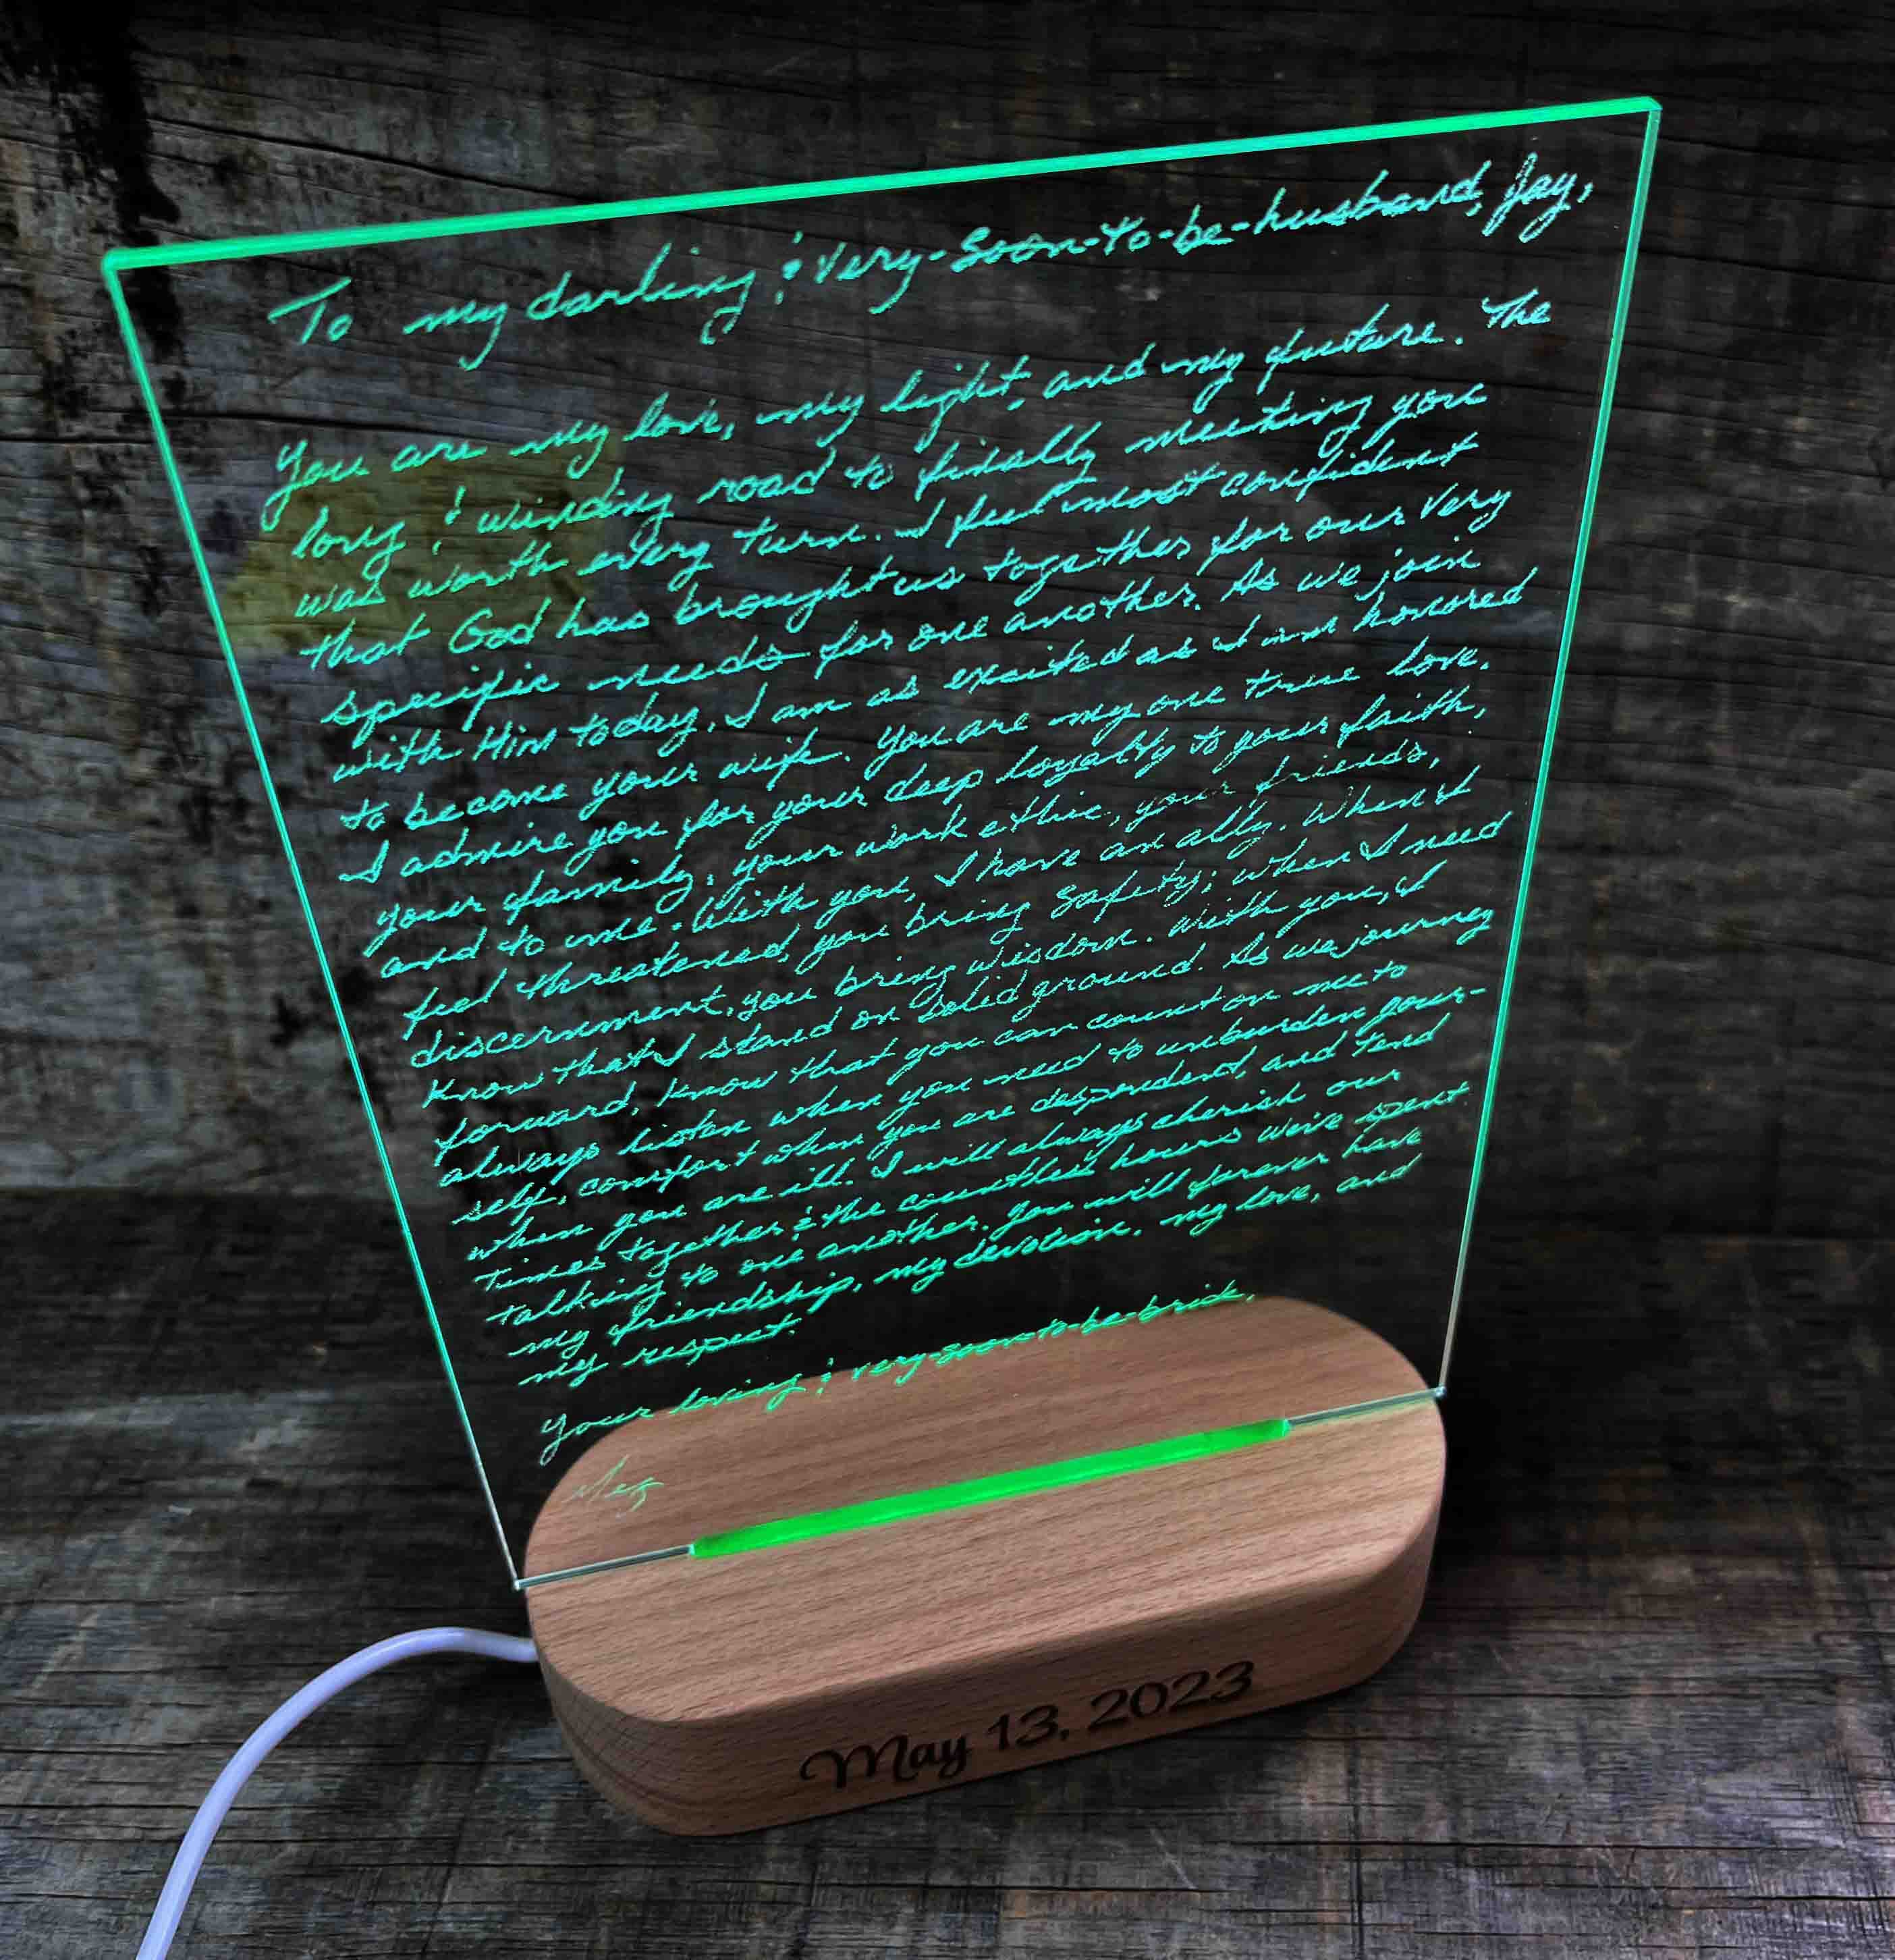 To my darling & very-soon-to-be-husband, Jay,
You are my love, my light, and my future. The
long & winding road to finally meeting you
was worth every turn. I feel most confident
that God has brought us together for our very
specific needs for one another. As we join
with Him today, I am as excited as I am honored
to become your wife. You are my one true love.
I admire you for your deep loyalty to your faith,
your family, your work ethic, your friends,
and to me. With you, I have an ally. When I
feel threatened, you bring safety; when I need
discernment, you bring wisdom. With you, I
know that I stand on solid ground. As we journey
forward, know that you can count on me to
always listen when you need to unburden your-
self, comfort when you are despondent, and tend
when you are ill. I will always cherish our
times together & the countless hours we've spent
talking to one another. You will forever have
my friendship, my devotion, my love, and
my respect.
Your loving & very-soon-to-be-bride,
Meg
May 13, 2023